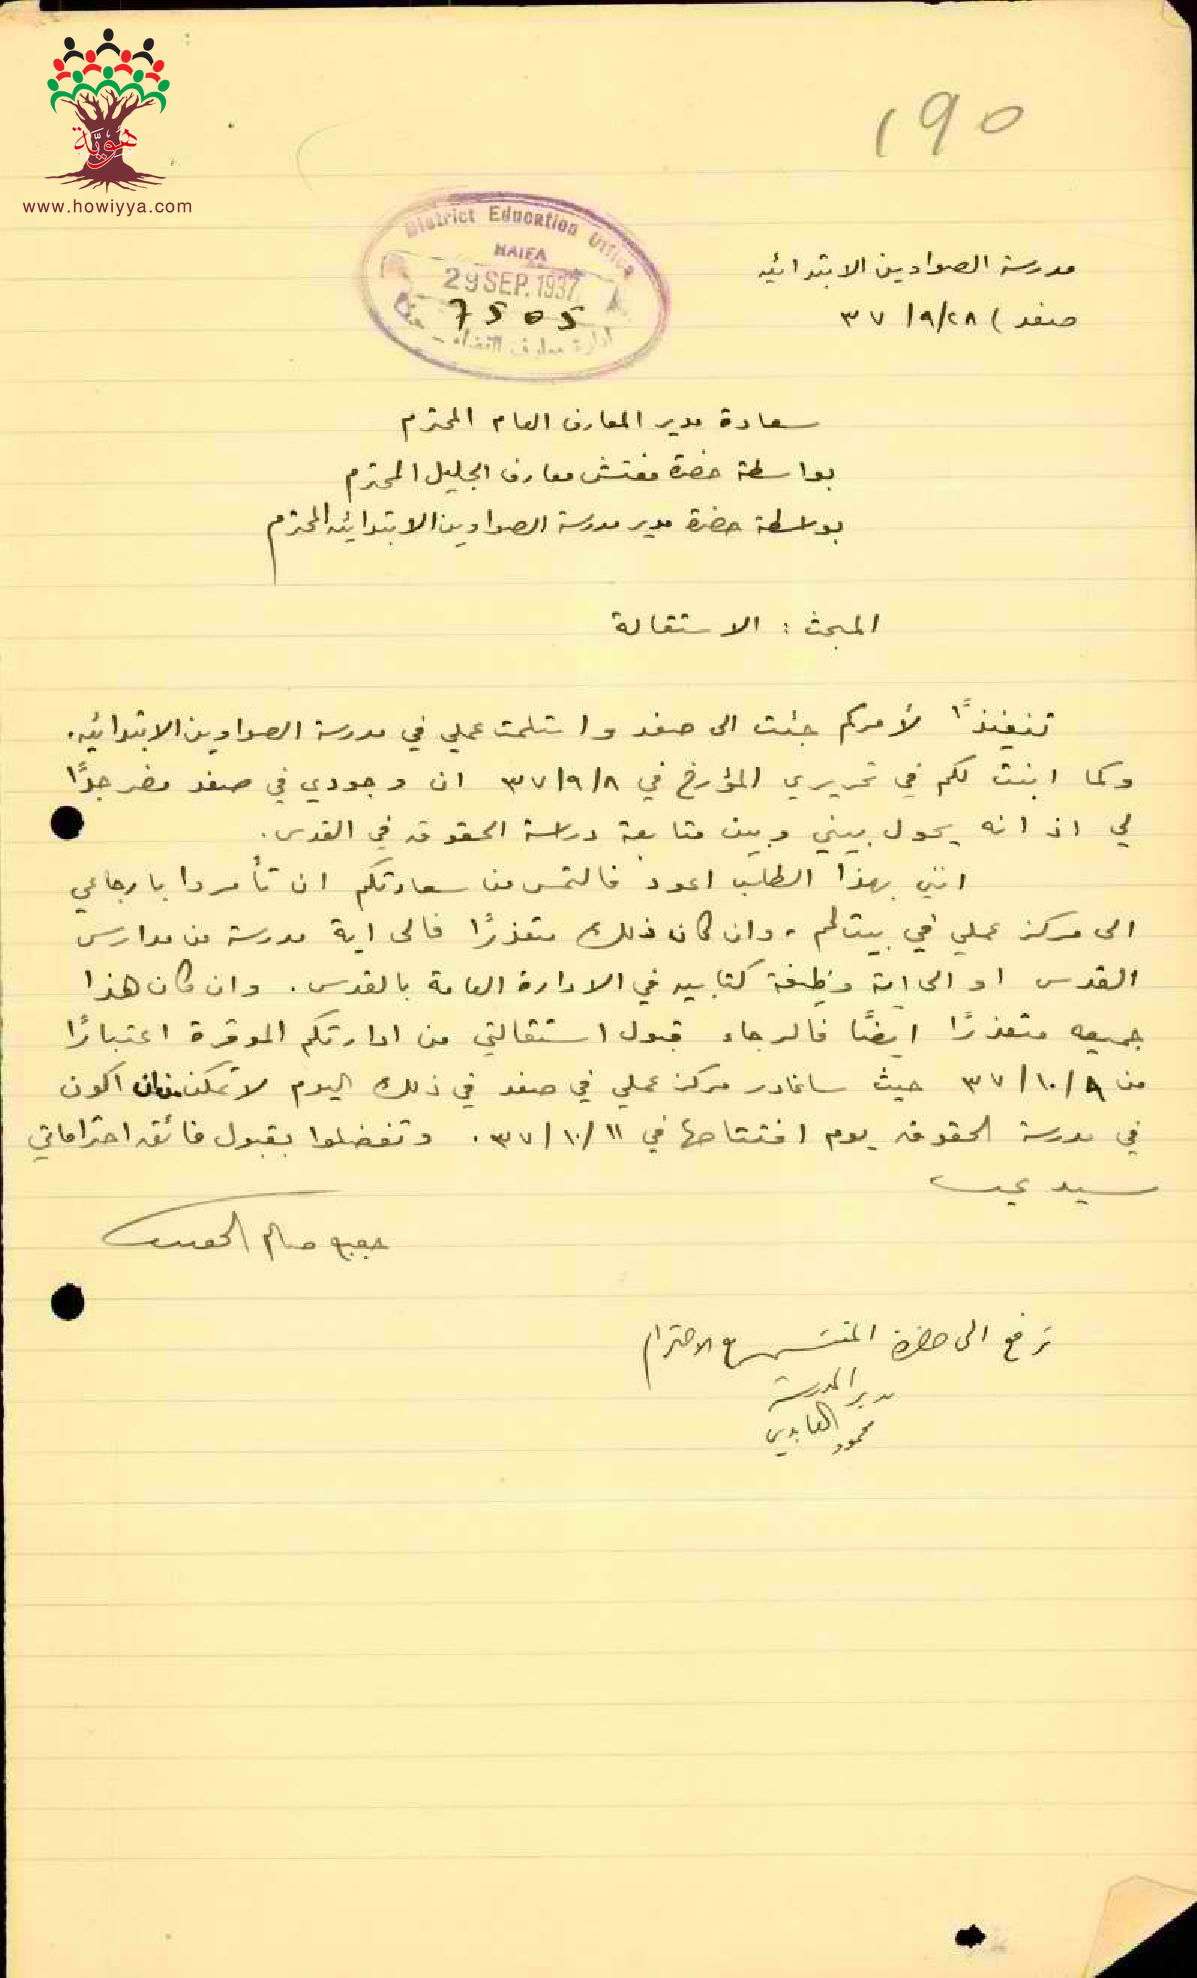 هويّة
www.howiyya.com
١٩٥
District Education Office
HAIFA
29 SEP. 1937
7505
ادارة معارف القضاء - حيفا
مدرسة الصوادين الابتدائيه
صفد ) ٣٧/٩/٢٨
سعادة مدير المعارف العام المحترم
بواسطة حضرة مفتش معارف الجليل المحترم
بواسطة حضرة مدير مدرسة الصوادين الابتدائيه المحترم
المبحث : الاستقالة
تنفيذًا لأمركم جئت الى صفد واستلمت عملي في مدرسة الصوادين الابتدائيه.
وكما ابنت لكم في تحريري المؤرخ في ٣٧/٩/٨ ان وجودي في صفد مضر جدًا
لي اذ انه يحول بيني وبين متابعة دراسة الحقوق في القدس.
انني بهذا الطلب اعود فالتمس من سعادتكم ان تأمروا بارجاعي
الى مركز عملي في بيت لحم، وان كان ذلك متعذرًا فالى اية مدرسة من مدارس
القدس او الى اية وظيفة كتابيه في الادارة العامة بالقدس. وان كان هذا
جميعه متعذرًا ايضًا فالرجاء قبول استقالتي من ادارتكم الموقرة اعتبارًا
من ٣٧/١٠/٩ حيث ساغادر مركز عملي في صفد في ذلك اليوم لاتمكن من ان اكون
في مدرسة الحقوق يوم افتتاحها في ٣٧/١٠/١١. وتفضلوا بقبول فائق احتراماتي
سيدي
صالم
ترفع الى حضرة المفتش مع الاحترام
مدير المدرسة
محمود العابدي